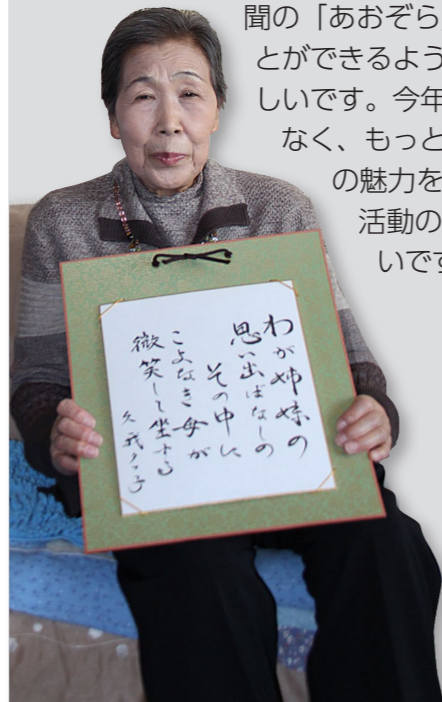 聞の「あおぞら
とができるよう
しいです。今年
なく、もっと
の魅力を
活動の
いです
わが姉妹の
思い出ばなしの
その中に
こよなき母が
微笑して坐する
久我